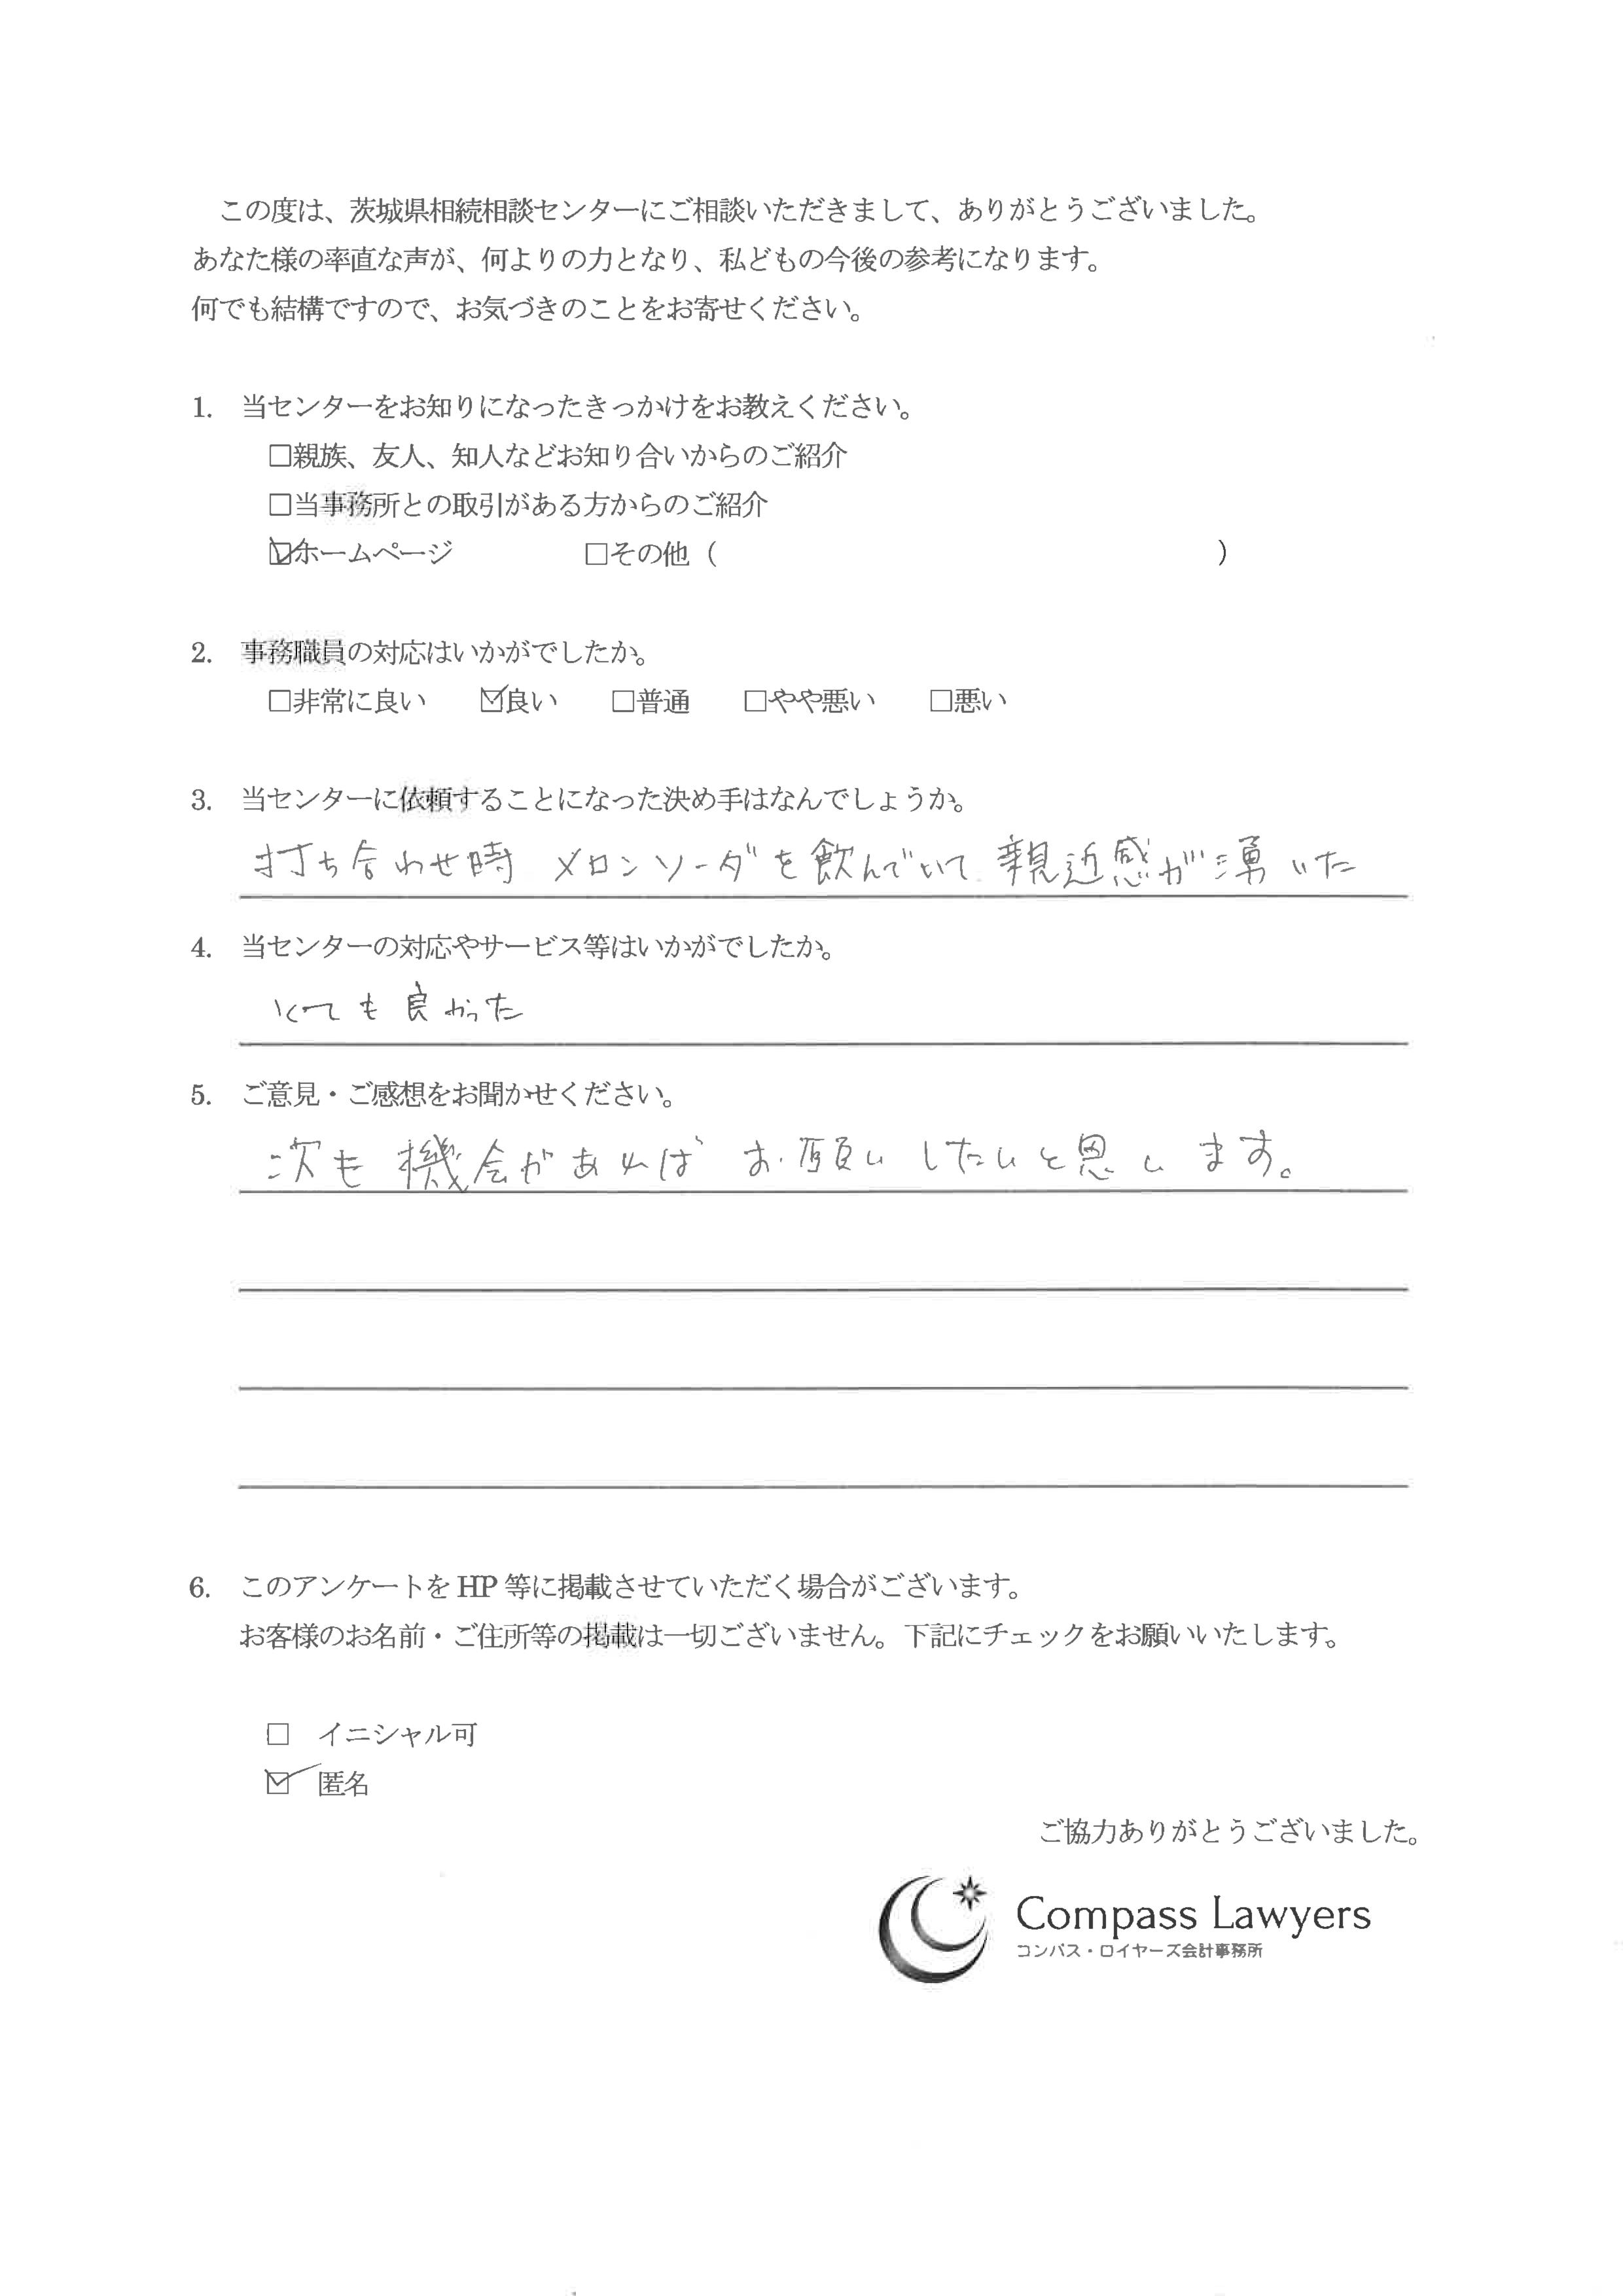 この度は、茨城県相続相談センターにご相談いただきまして、ありがとうございました。
あなた様の率直な声が、何よりの力となり、私どもの今後の参考になります。
何でも結構ですので、お気づきのことをお寄せください。
1. 当センターをお知りになったきっかけをお教えください。
□親族、友人、知人などお知り合いからのご紹介
□当事務所との取引がある方からのご紹介
☑ホームページ □その他（ ）
2. 事務職員の対応はいかがでしたか。
□非常に良い ☑良い □普通 □やや悪い □悪い
3. 当センターに依頼することになった決め手はなんでしょうか。
打ち合わせ時 メロンソーダを飲んでいて 親近感が湧いた
4. 当センターの対応やサービス等はいかがでしたか。
とても良かった
5. ご意見・ご感想をお聞かせください。
次も機会があればお願いしたいと思います。
6. このアンケートを HP 等に掲載させていただく場合がございます。
お客様のお名前・ご住所等の掲載は一切ございません。下記にチェックをお願いいたします。
□ イニシャル可
☑ 匿名
ご協力ありがとうございました。
Compass Lawyers
コンパス・ロイヤーズ会計事務所